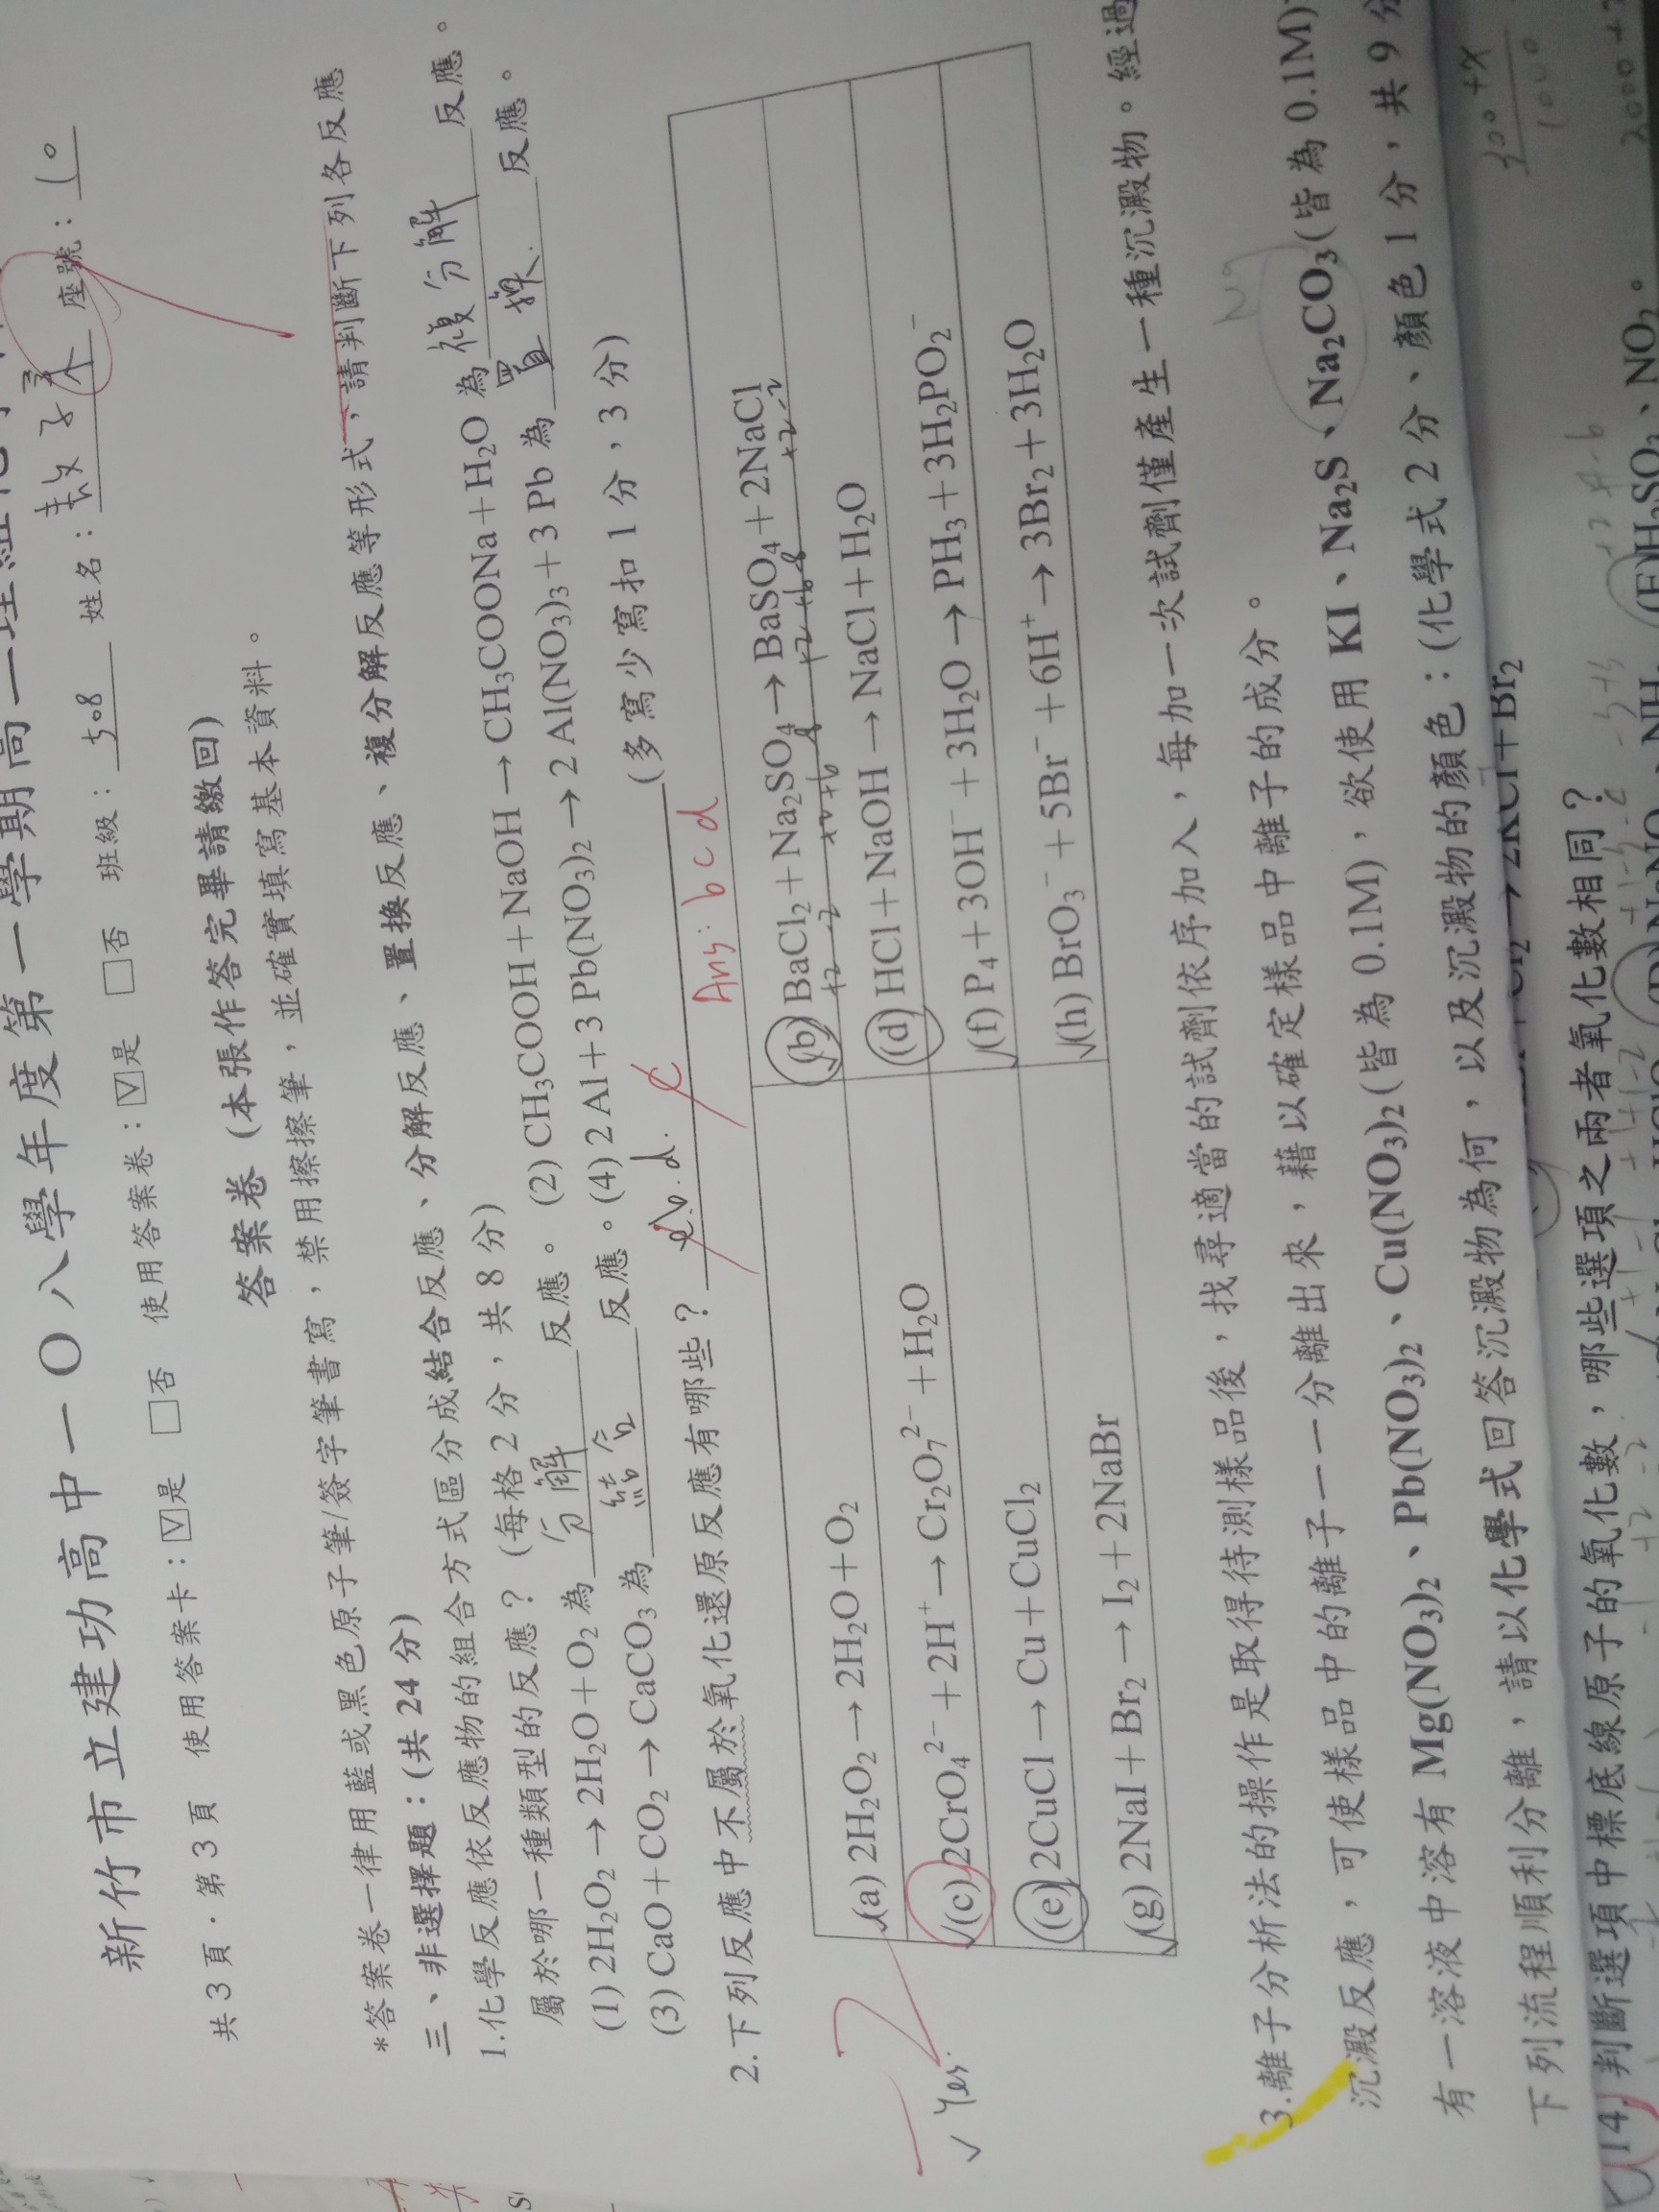 新竹市立建功高中一○八學年度第一學期高一
共3頁．第3頁 使用答案卡：☑是 □否 使用答案卷：☑是 □否 班級：508 姓名： 座號：10
答案卷 (本張作答完畢請繳回)
*答案卷一律用藍或黑色原子筆/簽字筆書寫，禁用擦擦筆，並確實填寫基本資料。
三、非選擇題：(共24分)
1.化學反應依反應物的組合方式區分成結合反應、分解反應、置換反應、複分解反應等形式，請判斷下列各反應
屬於哪一種類型的反應？(每格2分，共8分)
(1) 2H₂O₂→2H₂O+O₂為 分解 反應。 (2) CH₃COOH+NaOH→CH₃COONa+H₂O為 複分解 反應。
(3) CaO+CO₂→CaCO₃為 結合 反應。(4) 2Al+3Pb(NO₃)₂→2Al(NO₃)₃+3Pb為 置換 反應。
2.下列反應中不屬於氧化還原反應有哪些？ e.b.d. (多寫少寫扣1分，3分)
Ans: b c d
(a) 2H₂O₂→2H₂O+O₂ (b) BaCl₂+Na₂SO₄→BaSO₄+2NaCl
(c) 2CrO₄²⁻+2H⁺→Cr₂O₇²⁻+H₂O (d) HCl+NaOH→NaCl+H₂O
(e) 2CuCl→Cu+CuCl₂ (f) P₄+3OH⁻+3H₂O→PH₃+3H₂PO₂⁻
(g) 2NaI+Br₂→I₂+2NaBr (h) BrO₃⁻+5Br⁻+6H⁺→3Br₂+3H₂O
✓ Yes.
3.離子分析法的操作是取得待測樣品後，找尋適當的試劑依序加入，每加一次試劑僅產生一種沉澱物。經過
沉澱反應，可使樣品中的離子一一分離出來，藉以確定樣品中離子的成分。
有一溶液中溶有Mg(NO₃)₂、Pb(NO₃)₂、Cu(NO₃)₂(皆為0.1M)，欲使用KI、Na₂S、Na₂CO₃(皆為0.1M)
下列流程順利分離，請以化學式回答沉澱物為何，以及沉澱物的顏色：(化學式2分、顏色1分，共9分
→2KCl+Br₂
14 判斷選項中標底線原子的氧化數，哪些選項之兩者氧化數相同？
(E)H₂SO₃、NO₂。